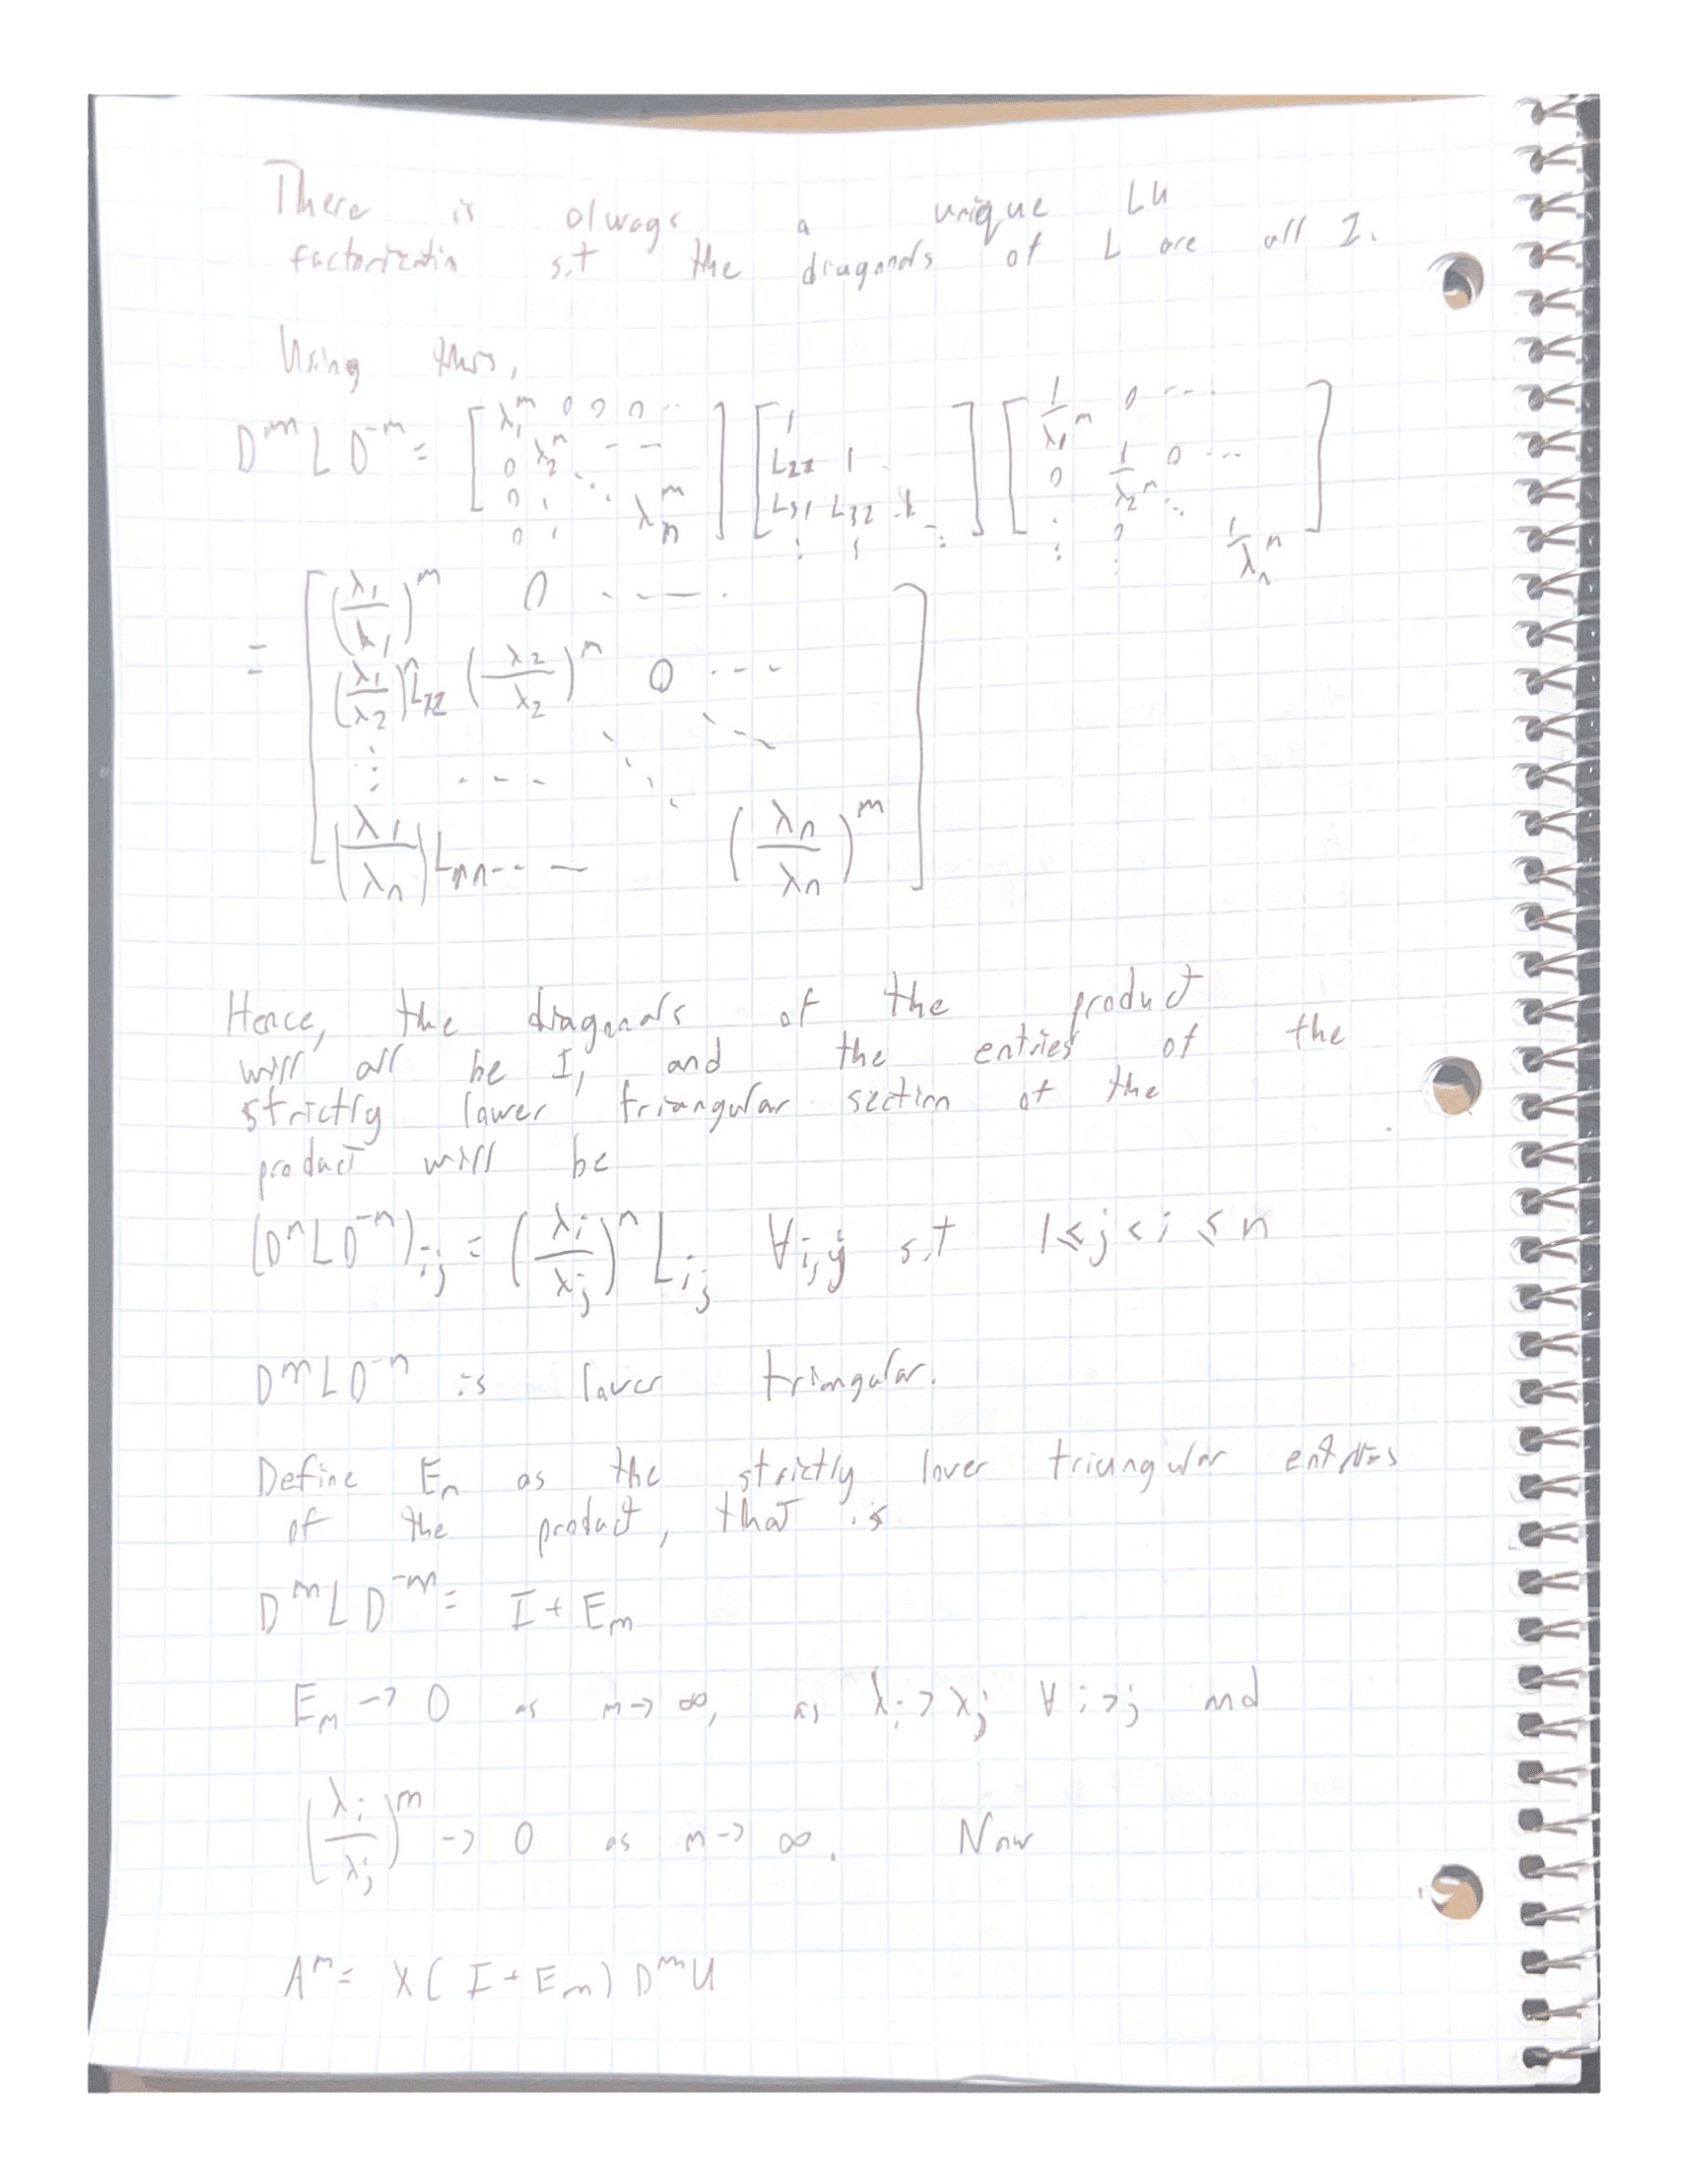 There is always a unique LU
factorization s.t the diagonals of L are all 1.
Using this,
D^m L D^-m = [λ₁^m 0 0 0 ··; 0 λ₂^m - -; 0 ⋮ ⋱ λ_n^m; 0 ⋮] [1; L₂₂ 1; L₃₁ L₃₂ 1; ⋮ ⋮ ⋱] [1/λ₁^m 0 ---; 0 1/λ₂^m 0 ---; ⋮ ⋮ ⋱ 1/λ_n^m]
= [(λ₁/λ₁)^m 0 ----; (λ₁/λ₂)^m L₂₂ (λ₂/λ₂)^m 0 ---; ⋮ --- ⋱ ⋱; (λ₁/λ_n) L_nn --- (λ_n/λ_n)^m]
Hence, the diagonals of the product
will all be 1, and the entries of the
strictly lower triangular section of the
product will be
(D^m L D^-m)_ij = (λ_i/λ_j)^m L_ij ∀i,j s.t 1 ≤ j < i ≤ n
D^m L D^-m is lower triangular.
Define E_m as the strictly lower triangular entries
of the product, that is
D^m L D^-m = I + E_m
E_m -> 0 as m -> ∞, as λ_i > λ_j ∀ i > j and
(λ_i/λ_j)^m -> 0 as m -> ∞. Now
A^m = X ( I + E_m ) D^m U